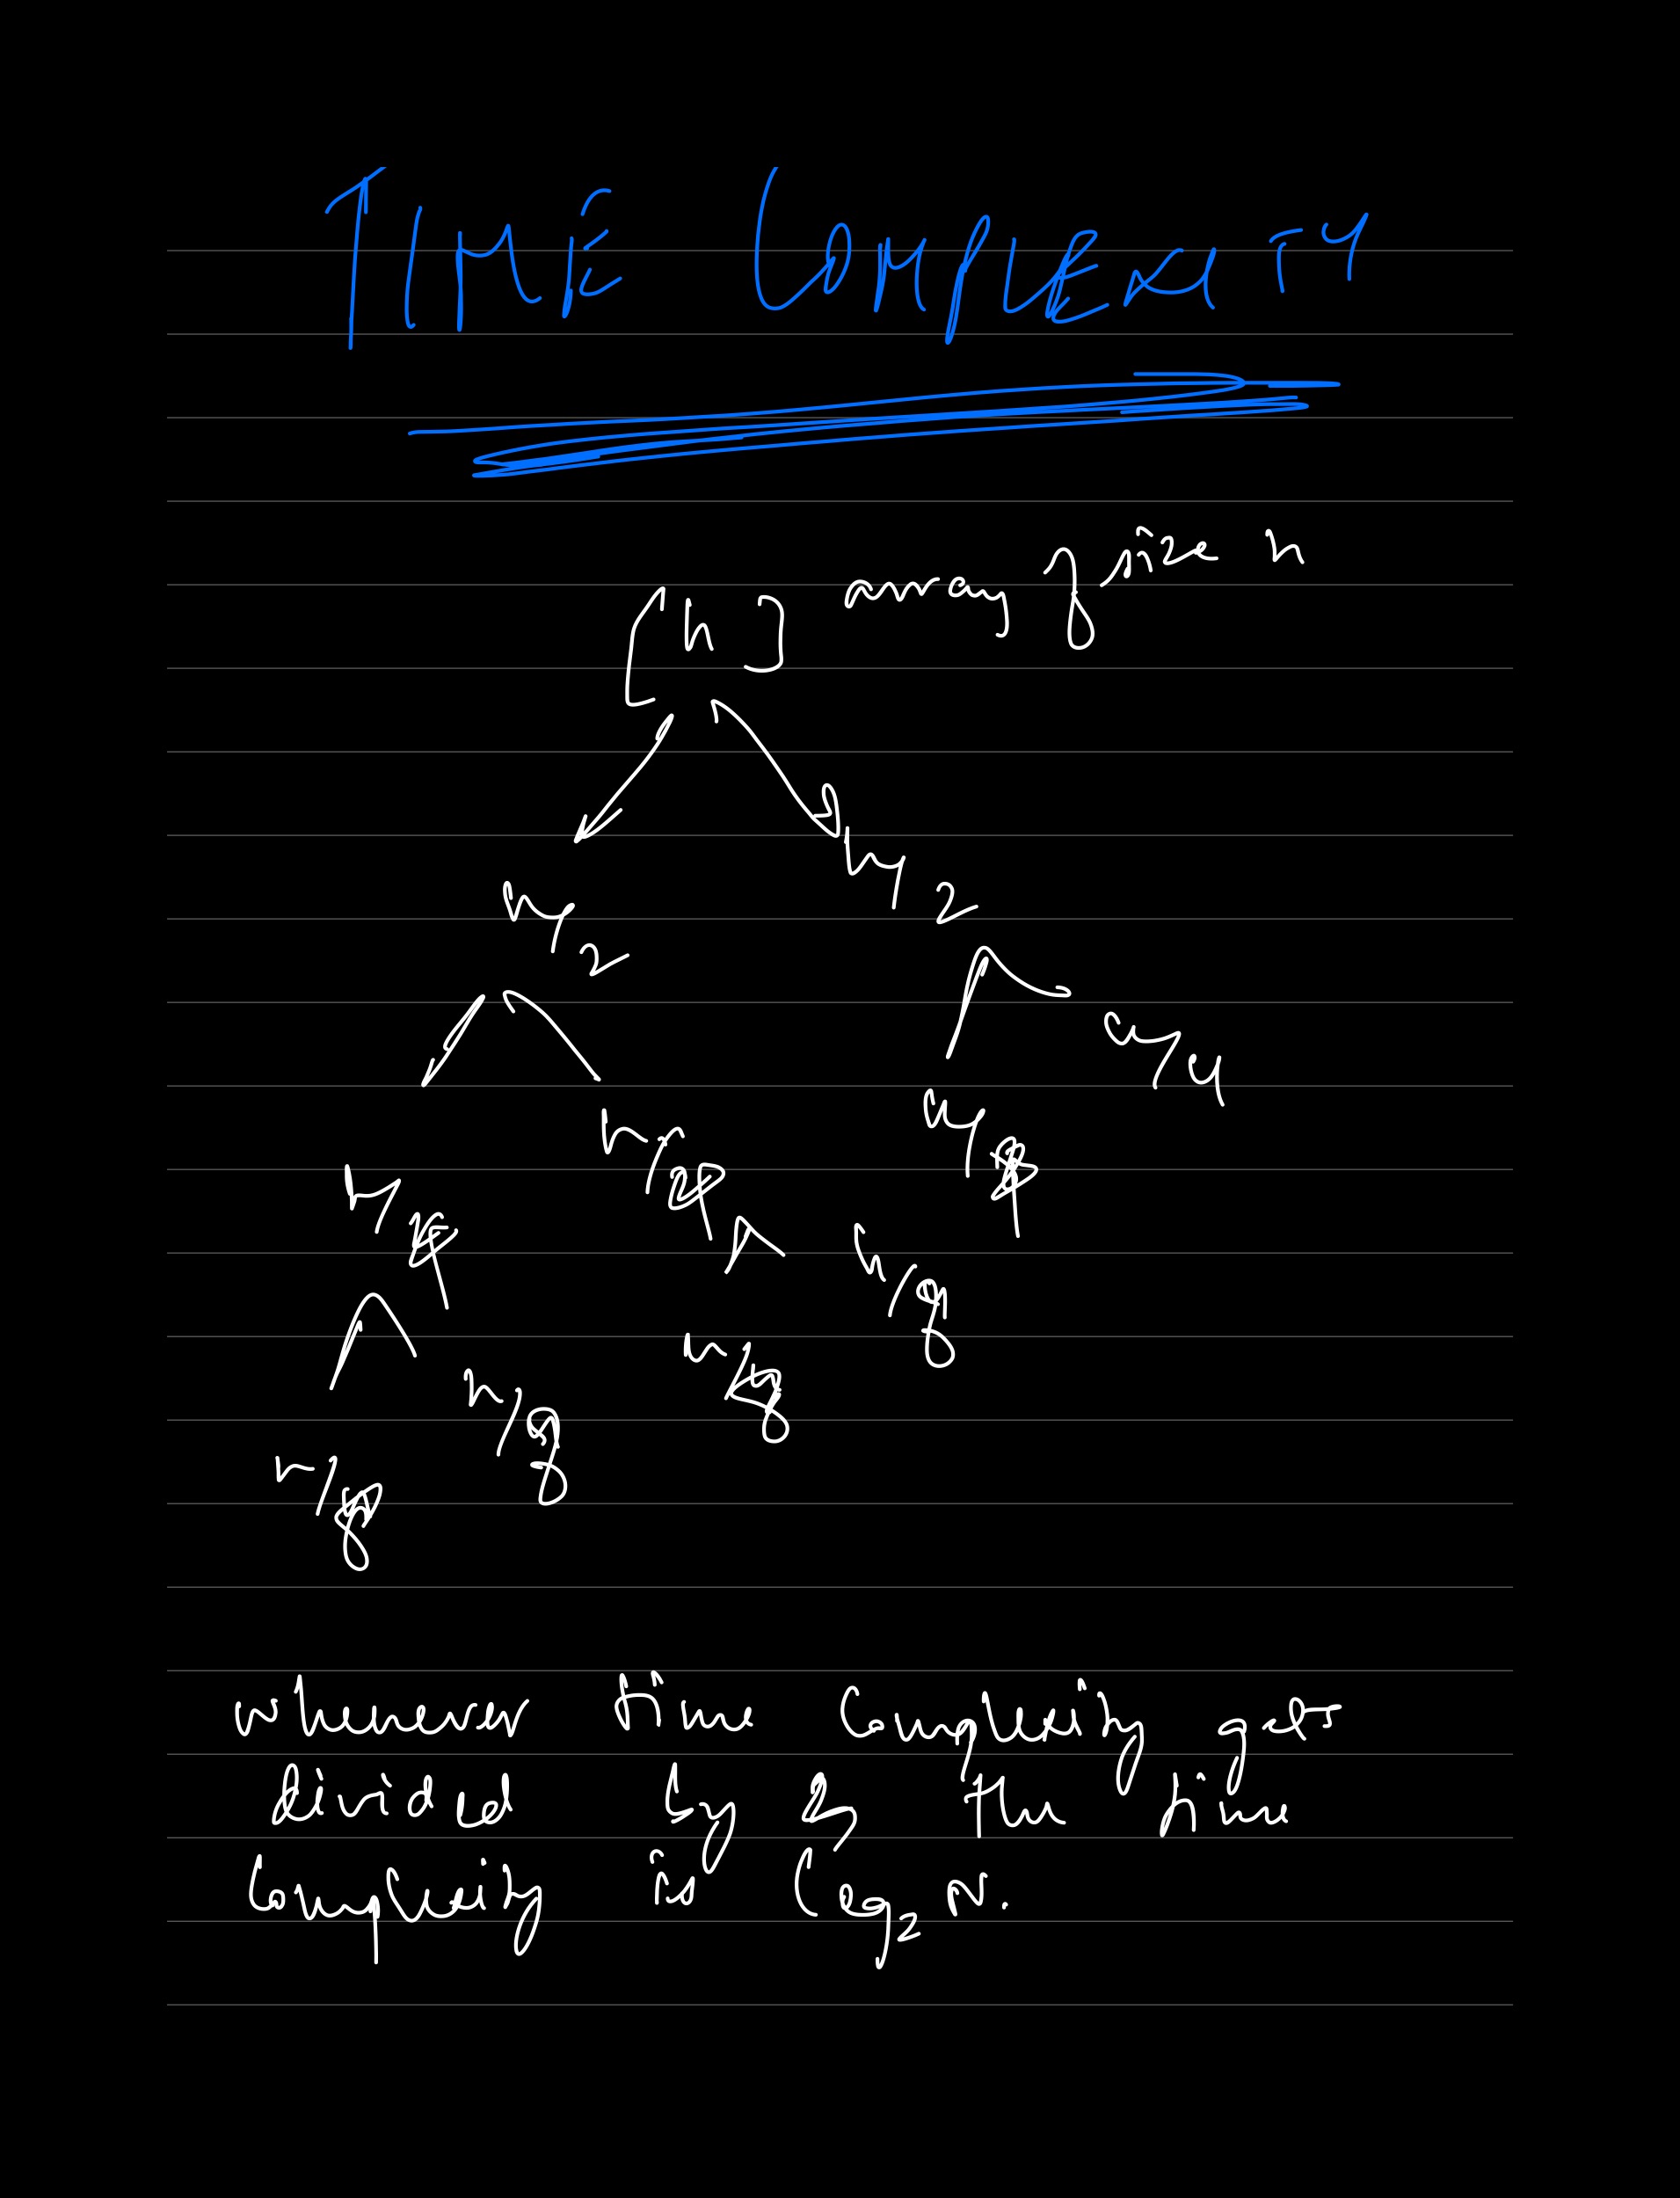 TIME COMPLEXITY
[n] array of size n
n/2 n/2
n/4 n/4 n/4 n/4
n/8 n/8 n/8 n/8
whenever time Complexity get
divided by 2, the time
Complexity is Log₂ N.